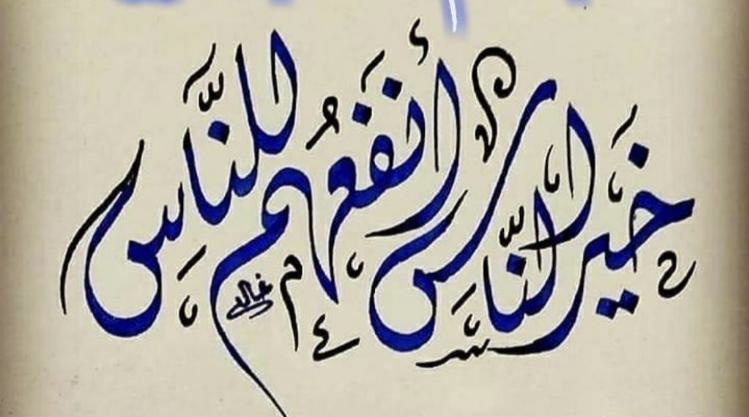 خَيرُ النَّاسِ أَنفَعُهُم للنَّاسِ